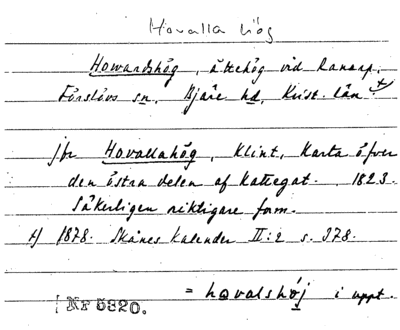 Hovalla hög
Howardshög, ättehög vid Ranarp.
Förslövs sn, Bjäre hd, Krist. län +)
jfr Hovallahög, Klint, Karta öfver
den östra delen af Kattegat. 1823.
Säkerligen riktigare form.
+) 1878. Skånes Kalender II:2 s. 378.
= hovalshöj i uppt.
Nr 5320.